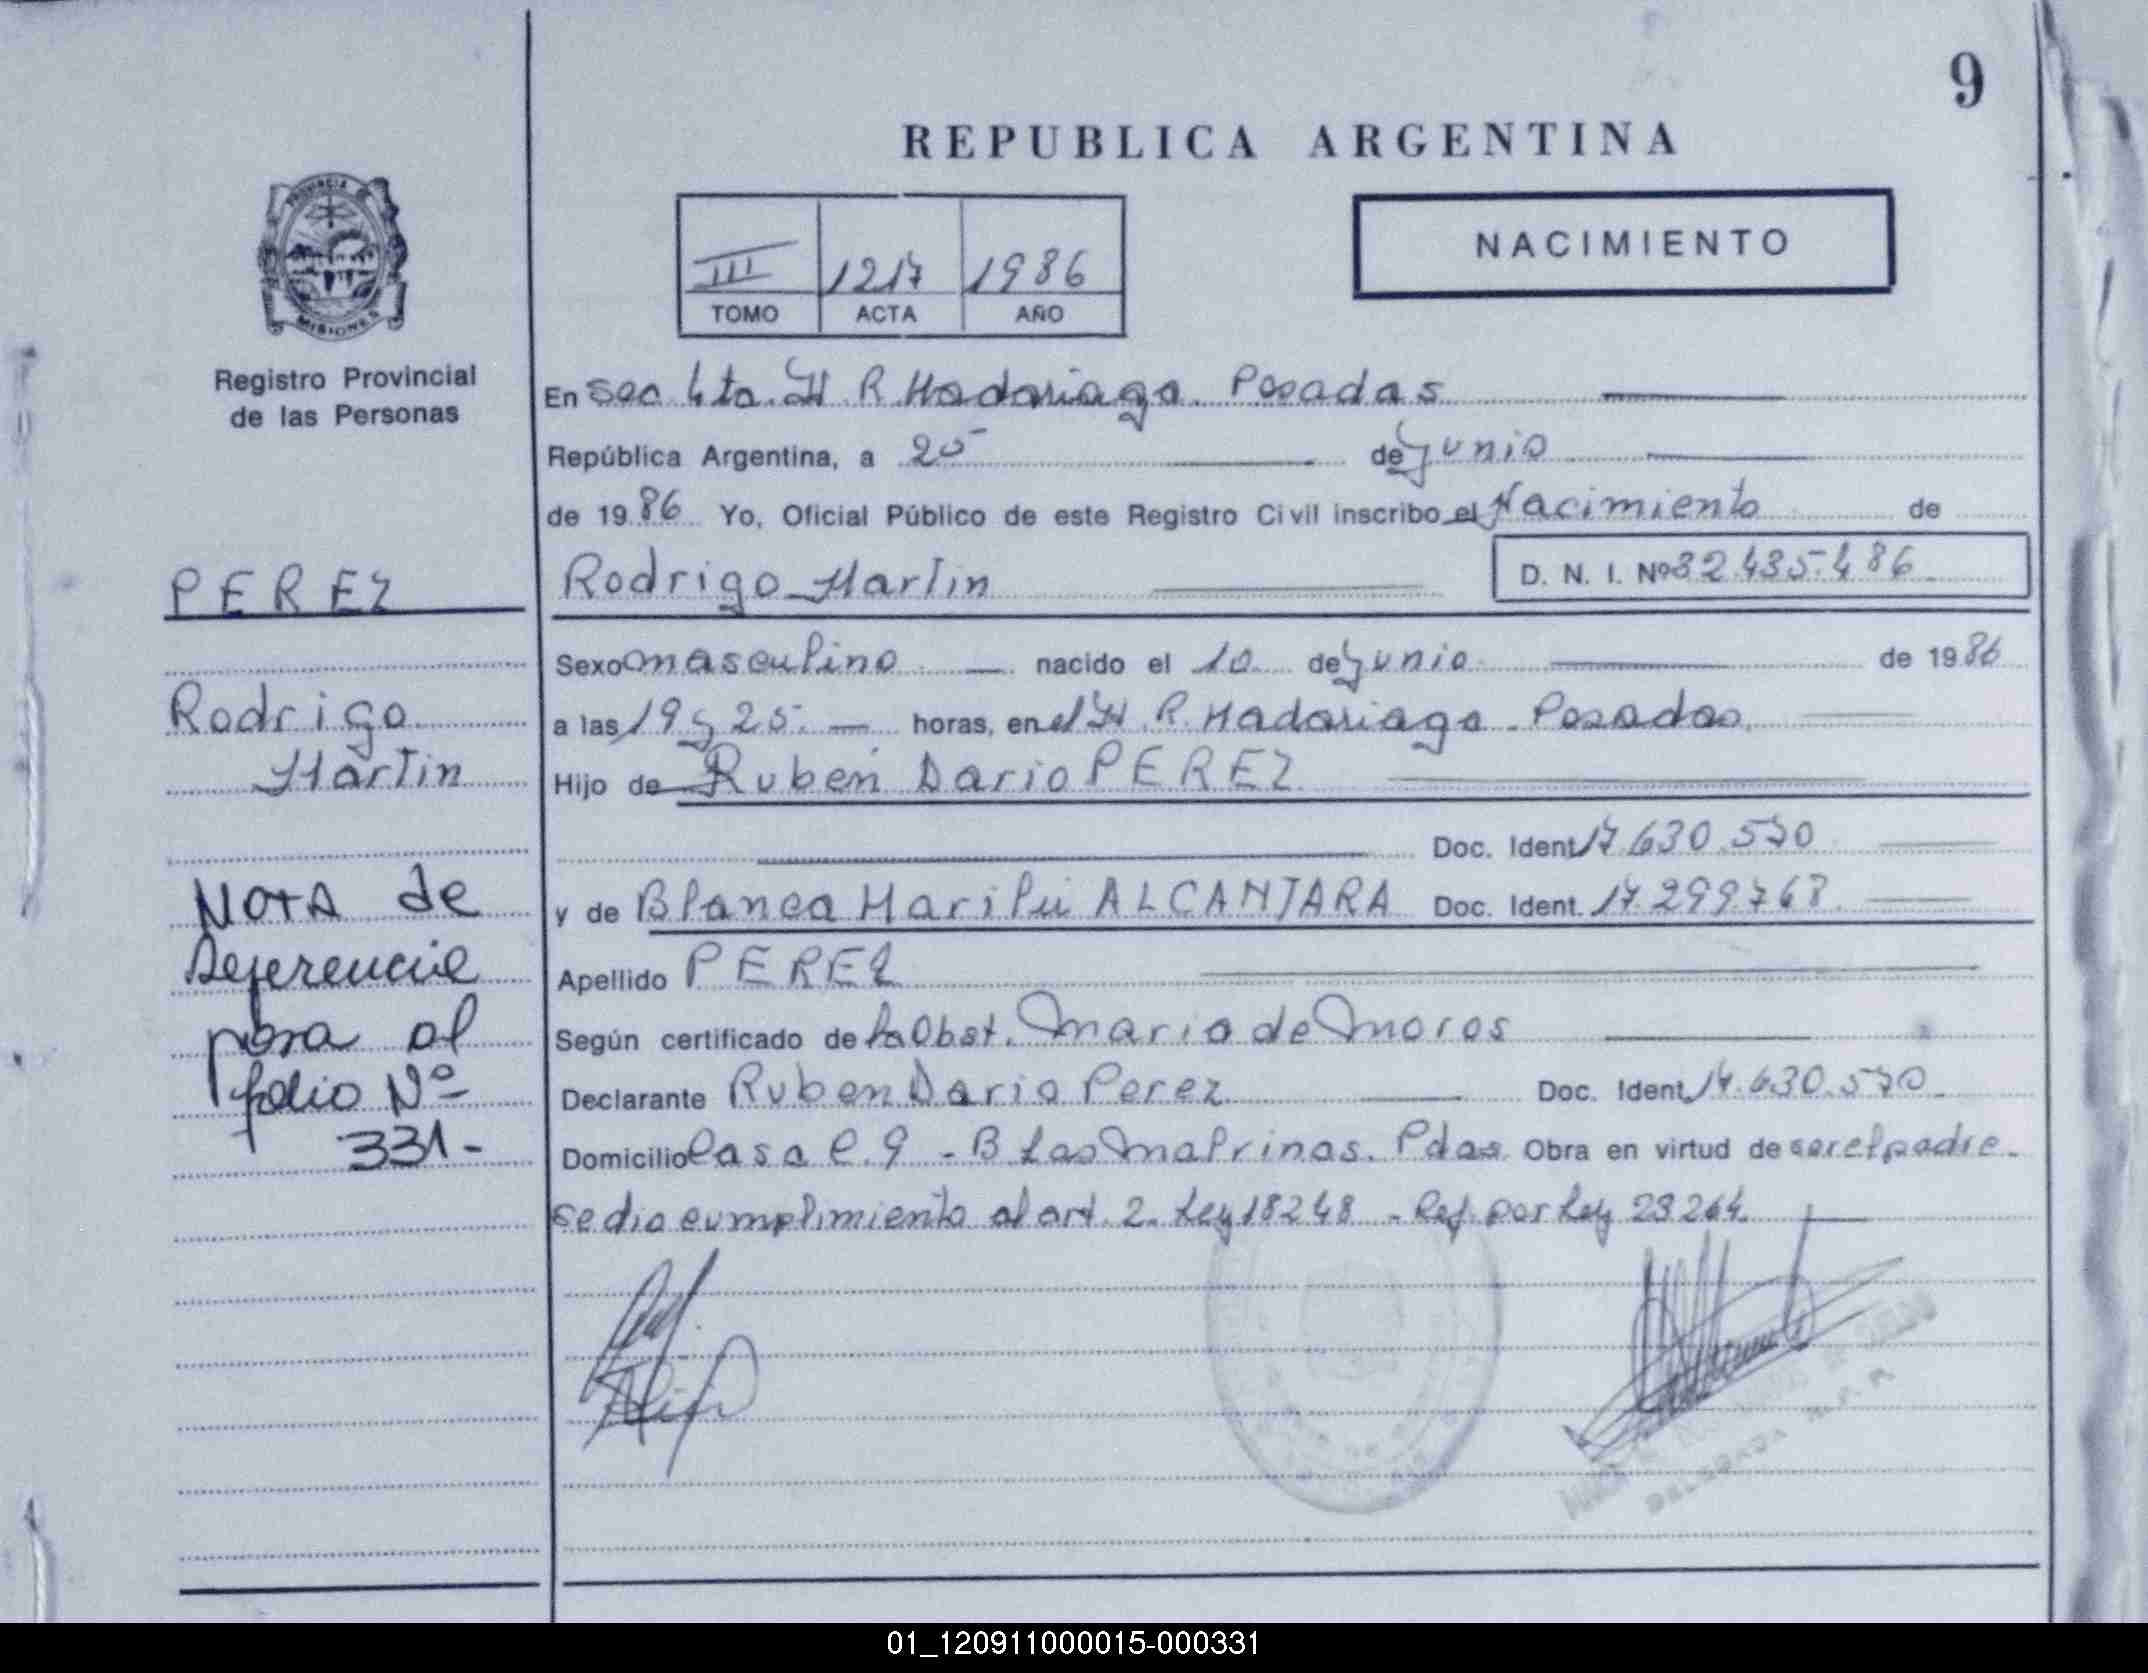 9
REPUBLICA ARGENTINA
PROVINCIA DE
MISIONES
III 1217 1986
TOMO ACTA AÑO
NACIMIENTO
Registro Provincial
de las Personas
En Sec 4ta. H. R. Madariaga. Posadas
República Argentina, a 25 de Junio
de 1986 Yo, Oficial Público de este Registro Civil inscribo el Nacimiento de
PEREZ
Rodrigo Martin D. N. I. Nº 32.435.486
Sexo masculino nacido el 10 de Junio de 1986
Rodrigo
a las 19 y 25. horas, en el H. R. Madariaga - Posadas.
Martin
Hijo de Ruben Dario PEREZ
Doc. Ident. 17.630.570
NOTA de
y de Blanca Marilu ALCANTARA Doc. Ident. 17.299.768
Referencia
Apellido PEREZ
para al
Según certificado de la Obst. Maria de Moros
folio Nº
Declarante Ruben Dario Perez Doc. Ident. 17.630.570
331-
Domicilio Casa C. 9 - B Las Malvinas. Pdas. Obra en virtud de ser el padre.
Se dio cumplimiento al art. 2. Ley 18248 - Ref. por Ley 23264.
01_120911000015-000331